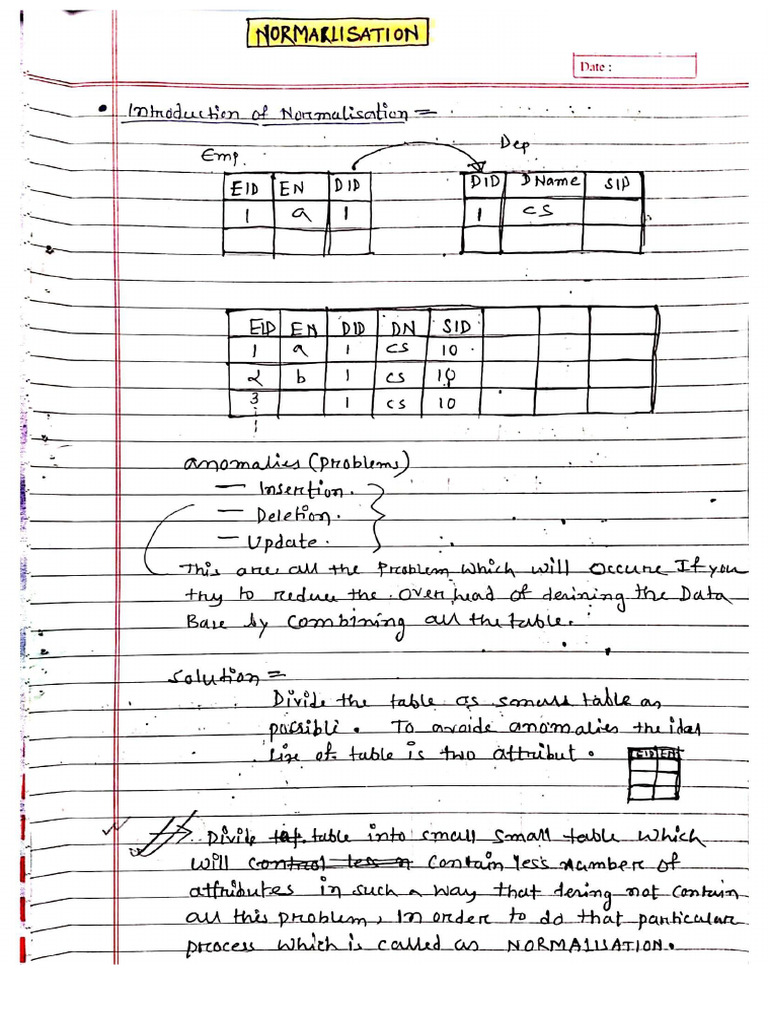 NORMARLISATION
Date :
• Introduction of Normalisation =
Emp.
Dep
EID EN DID
1 a 1
DID DName SID
1 cs
EID EN DID DN SID
1 a 1 cs 10
2 b 1 cs 10
3 1 cs 10
anomalies (problems)
— Insertion.
— Deletion.
— Update.
This are all the problem which will occure If you
try to reduce the over head of dering the Data
Base by combining all the table.
Solution =
Divide the table as small table as
possible. To avoide anomalies the ideal
size of table is two attribut.
EID EN
Divide table into small small table which
will contain less number of
attributes in such a way that dering not contain
all this problem, In order to do that particular
process which is called as NORMALISATION.